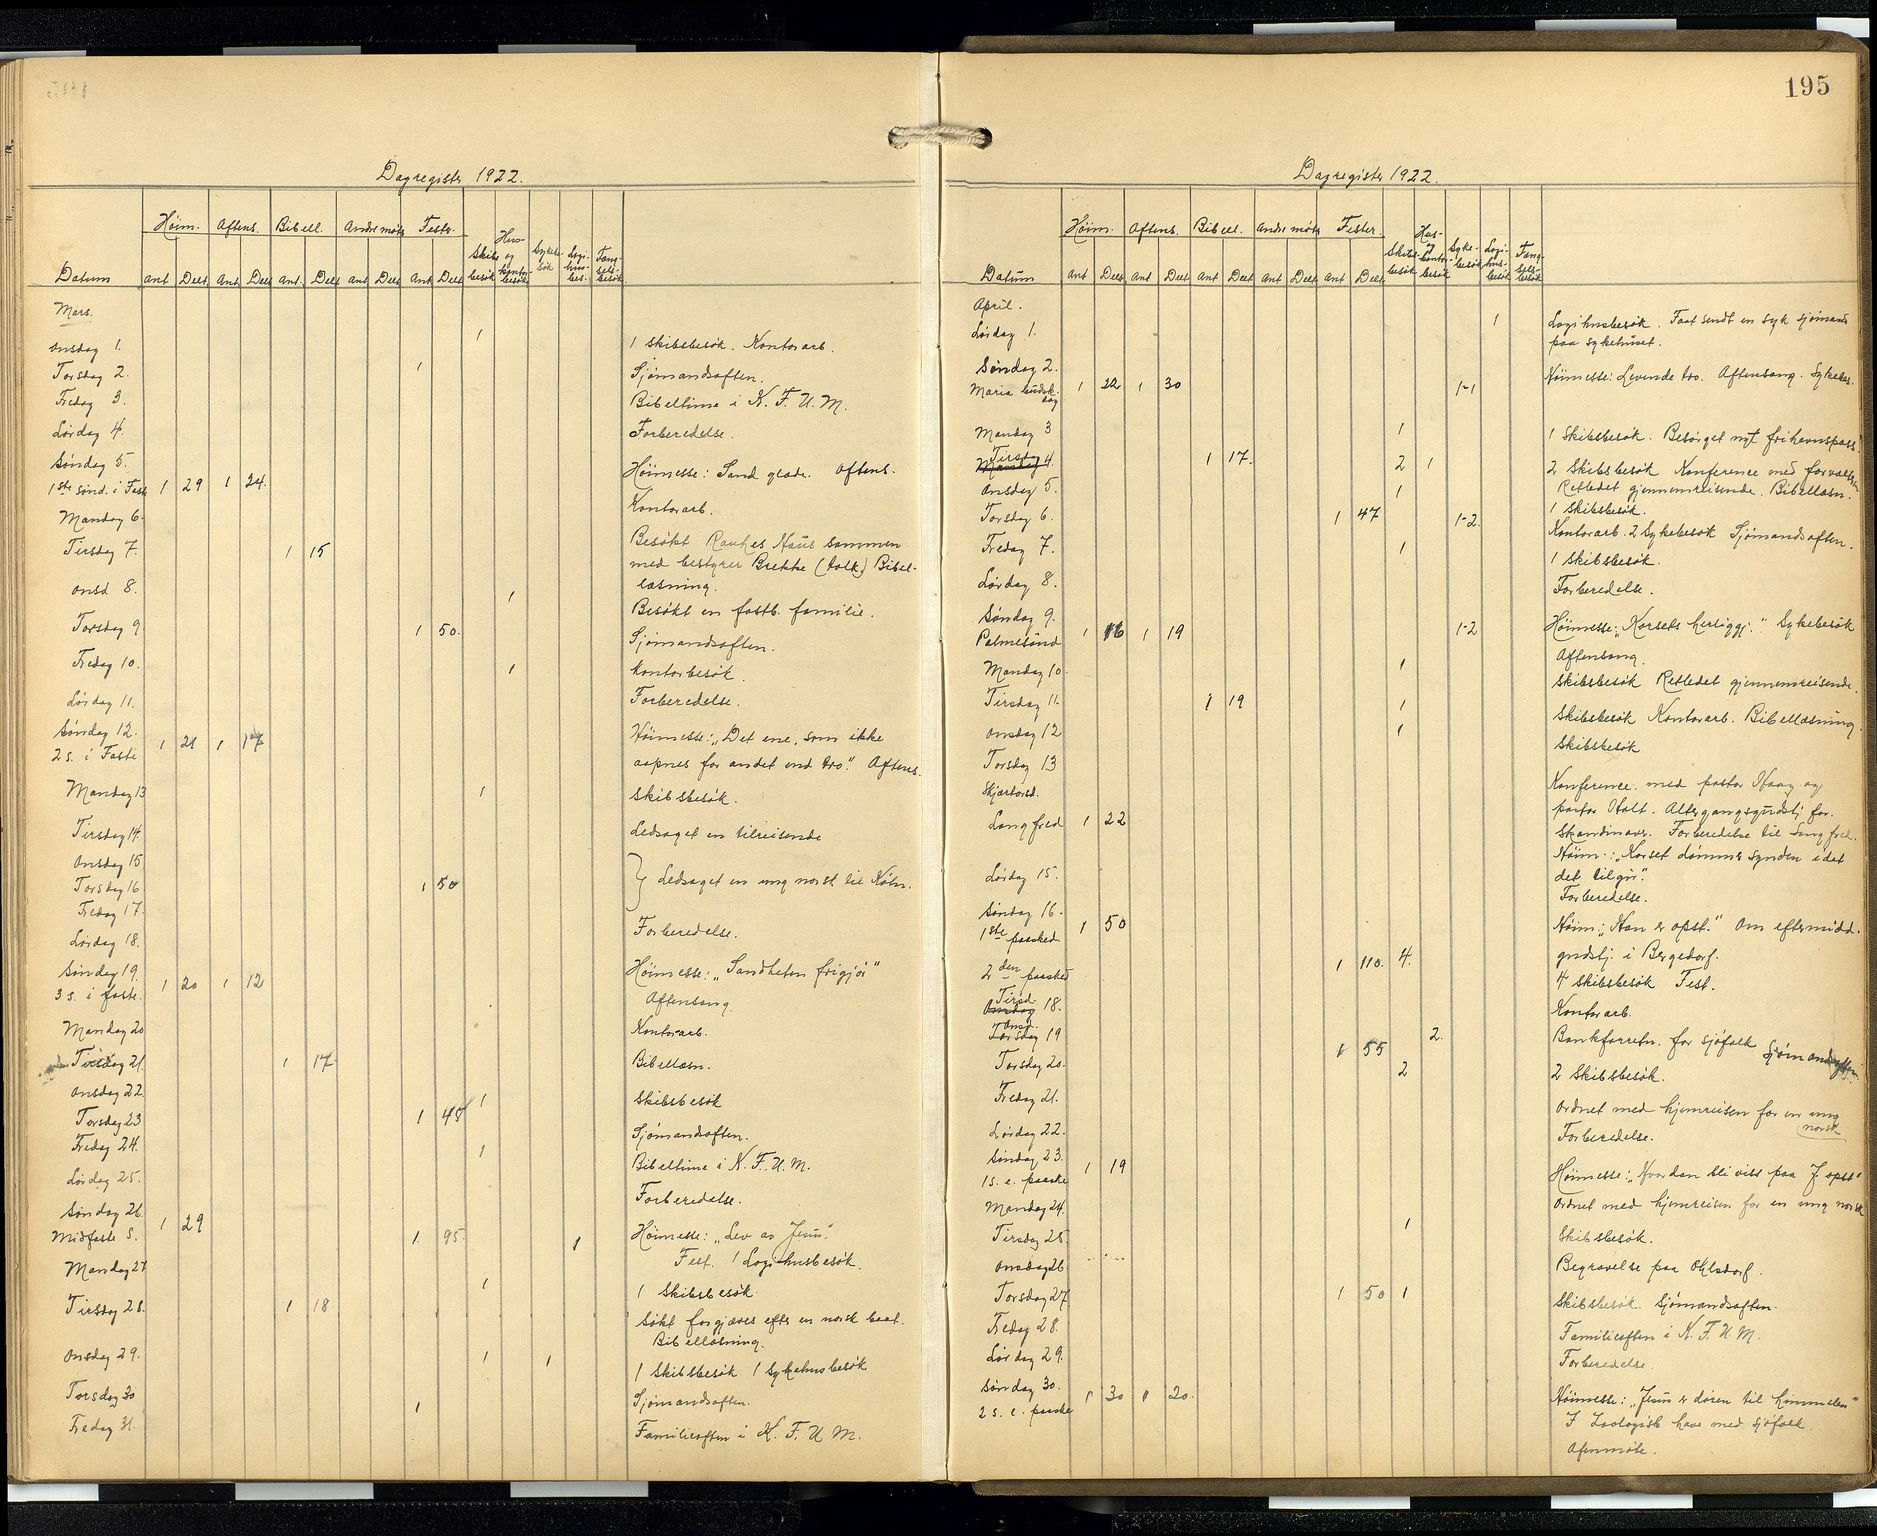 195
Dagregister 1922.
Høim. Aftens. Bibell. Andre møter Fester. Skibsbesøk Hus- og kontorbesøk Sykebesøk Logihusbes. Fængselsbesøk
Datum ant Delt ant. Delt ant. Delt ant Delt ant Delt
Mars.
Onsdag 1. 1 1 Skibsbesøk. Kontorarb.
Torsdag 2. 1 Sjømandsaften.
Fredag 3. Bibeltime i K. F. U. M.
Lørdag 4. Forberedelse.
Søndag 5.
1ste sønd. i Faste 1 29 1 24. Høimesse: Sand glæde. Aftens.
Mandag 6. Kontorarb.
Tirsdag 7. 1 15 Besøkt Rauhes Haus sammen
med bestyrer Brekke (tolk) Bibel-
læsning.
Onsd 8. 1 Besøkt en fastb. familie.
Torsdag 9. 1 50. Sjømandsaften.
Fredag 10. 1 Kontorbesøk.
Lørdag 11. Forberedelse.
Søndag 12.
2 s. i Faste 1 21 1 17 Høimesse: „Det ene, som ikke
aapnes for andet end tro." Aftens.
Mandag 13 1 Skibsbesøk.
Tirsdag 14. Ledsaget en tilreisende
Onsdag 15
Torsdag 16. 1 50 } Ledsaget en ung norsk til Køln.
Fredag 17.
Lørdag 18. Forberedelse.
Søndag 19. Høimesse: „Sandheten frigjør"
3 s. i faste. 1 20 1 12 Aftensang.
Mandag 20 Kontorarb.
Tirsdag 21. 1 17 Bibellæsn.
Onsdag 22. 1 Skibsbesøk
Torsdag 23 1 48 Sjømandsaften.
Fredag 24. 1 Bibeltime i K. F. U. M.
Lørdag 25. Forberedelse.
Søndag 26.
Midfaste s. 1 29 1 95. 1 Høimesse: „Lev av Jesus."
Fest. 1 Logihusbesøk.
Mandag 27 1 1 Skibsbesøk
Tirsdag 28. 1 18 Søkt forgjæves efter en norsk baat.
Bibellæsning.
Onsdag 29. 1 1 1 Skibsbesøk 1 Sykehusbesøk
Torsdag 30 1 Sjømandsaften.
Fredag 31. Familieaften i K. F. U M.
Dagregister 1922.
Høim. Aftens. Bibell. Andre møter Fester. Skibsbesøk Hus- & kontorbesøk Sykebesøk Logihusbesøk Fængselsbesøk
Datum ant Delt ant Delt ant Delt ant Delt ant Delt
April.
Lørdag 1. 1 Logihusbesøk. Faat sendt en syk sjømand
paa sykehuset.
Søndag 2.
Maria budsk. dag 1 22 1 30 1-1 Høimesse: Levende tro. Aftensang. Sykebes.
Mandag 3 1 1 Skibsbesøk. Besørget nyt frihavnspass.
Mandag Tirsdag 4. 1 17. 2 1 2 Skibsbesøk Konference med forvalteren
Retledet gjennemreisende. Bibellæsn.
Onsdag 5. 1 1 Skibsbesøk.
Torsdag 6. 1 47 1-2. Kontorarb. 2 Sykebesøk Sjømandsaften.
Fredag 7. 1 1 Skibsbesøk.
Lørdag 8. Forberedelse.
Søndag 9.
Palmesønd 1 16 1 19 1-2 Høimesse: „Korsets herliggj." Sykebesøk
Aftensang.
Mandag 10. 1 Skibsbesøk Retledet gjennemreisende.
Tirsdag 11. 1 19 1 Skibsbesøk Kontorarb. Bibellæsning.
Onsdag 12 1 Skibsbesøk
Torsdag 13
Skjærtorsd. Konference med pastor Haag og
pastor Holt. Altergangsgudstj. for
Skandinaver. Forberedelse til Langfred.
Langfred 1 22 Høim.: „Korset dømmer synden idet
det tilgir".
Lørdag 15. Forberedelse.
Søndag 16.
1ste paasked. 1 50 Høim: „Han er opst." Om eftermidd.
gudstj. i Bergedorf.
2den paasked 1 110. 4. 4 Skibsbesøk Fest.
Onsdag Tirsd. 18. Kontorarb.
Torsdag Onsd. 19 2. Bankforretn. for sjøfolk
Torsdag 20. 1 55 2 2 Skibsbesøk. Sjømandsaften
Fredag 21. Ordnet med hjemreisen for en ung
norsk
Lørdag 22. Forberedelse.
Søndag 23.
1 s. e. paaske 1 19 Høimesse: „Hvordan bli viss paa J. opst"
Mandag 24. Ordnet med hjemreisen for en ung norsk
Tirsdag 25. 1 Skibsbesøk.
Onsdag 26. Begravelse paa Ohlsdorf.
Torsdag 27. 1 50 1 Skibsbesøk. Sjømandsaften.
Fredag 28. Familieaften i K. F. U. M.
Lørdag 29. Forberedelse.
Søndag 30.
2 s. e. paaske 1 30 1 20. Høimesse: „Jesus er døren til himmelen"
I Zoologisk have med sjøfolk.
Aftenmøte.